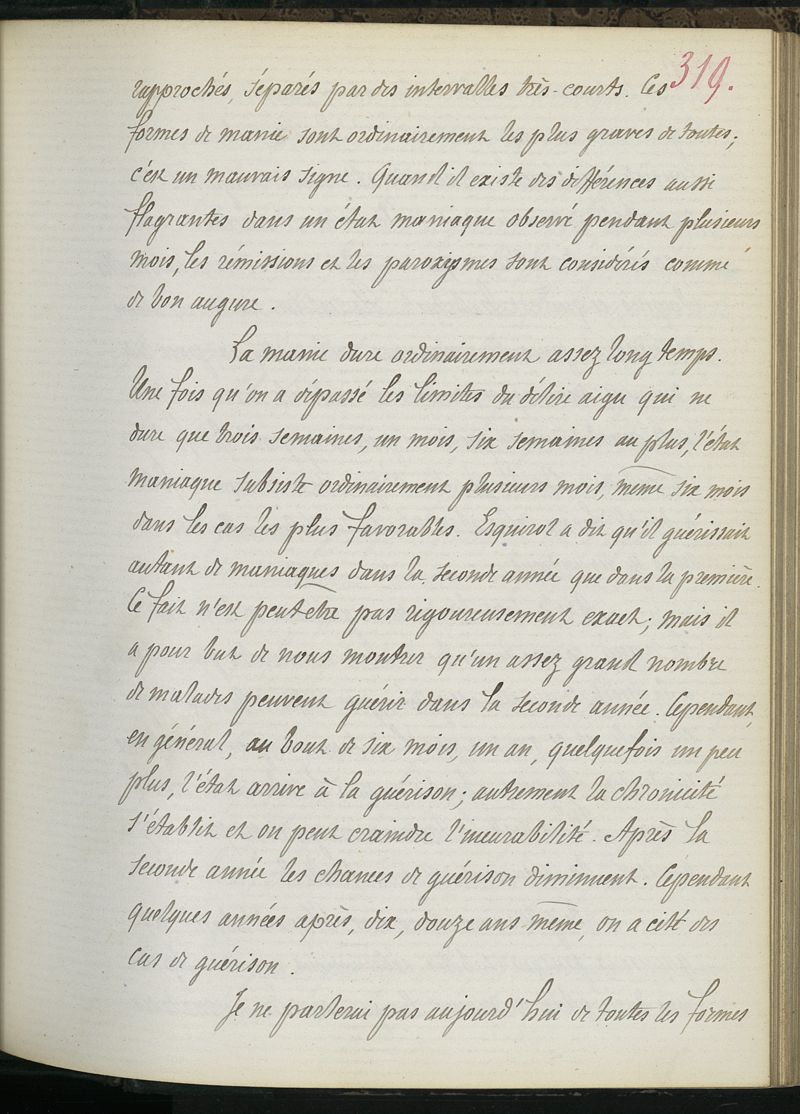 319.
rapprochés, séparés par des intervalles très-courts. Ces
formes de manie sont ordinairement les plus graves de toutes;
c'est un mauvais signe. Quand il existe des différences aussi
flagrantes dans un état maniaque observé pendant plusieurs
mois, les rémissions et les paroxysmes sont considérés comme
de bon augure.
La manie dure ordinairement assez long temps.
Une fois qu'on a dépassé les limites du délire aigu qui ne
dure que trois semaines, un mois, six semaines au plus, l'état
maniaque subsiste ordinairement plusieurs mois, même six mois
dans les cas les plus favorables. Esquirol a dit qu'il guérissait
autant de maniaques dans la seconde année que dans la première.
Ce fait n'est peut être pas rigoureusement exact; mais il
a pour but de nous montrer qu'un assez grand nombre
de malades peuvent guérir dans la seconde année. Cependant,
en général, au bout de six mois, un an, quelquefois un peu
plus, l'état arrive à la guérison; autrement la chronicité
s'établit et on peut craindre l'incurabilité. Après la
seconde année les chances de guérison diminuent. Cependant
quelques années après, dix, douze ans même, on a cité des
cas de guérison.
Je ne parlerai pas aujourd'hui de toutes les formes